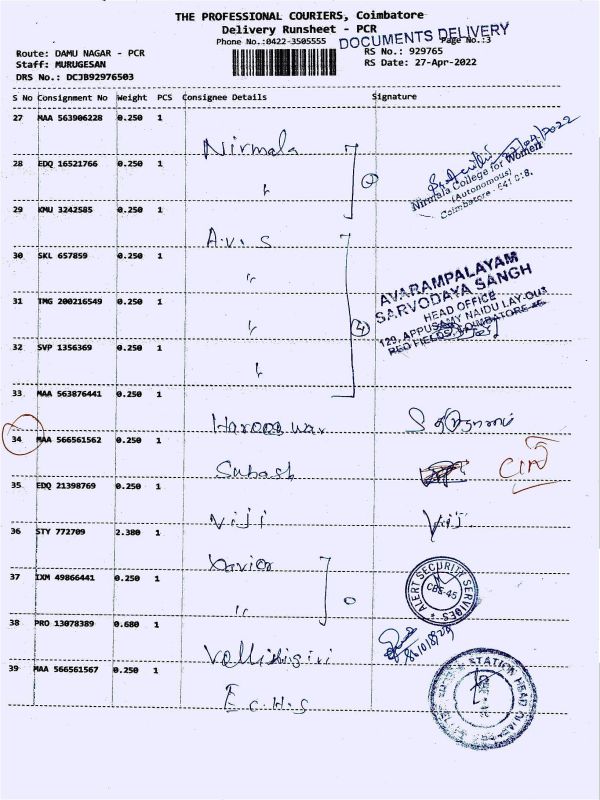 THE PROFESSIONAL COURIERS, Coimbatore
Delivery Runsheet - PCR
Phone No.:0422-3505555
DOCUMENTS DELIVERY
Page No.:3
Route: DAMU NAGAR - PCR
RS No.: 929765
Staff: MURUGESAN
RS Date: 27-Apr-2022
DRS No.: DCJB92976503
S No Consignment No Weight PCS Consignee Details Signature
27 MAA 563906228 0.250 1
Nirmala
28 EDQ 16521766 0.250 1
"
Nirmala College for Women
(Autonomous)
Coimbatore - 641 018.
29 KMU 3242585 0.250 1
A.V.S
30 SKL 657859 0.250 1
"
AVARAMPALAYAM
SARVODAYA SANGH
HEAD OFFICE
129, APPUSAMY NAIDU LAY-OUT
RED FIELDS, COIMBATORE-45
31 TMG 200216549 0.250 1
"
4
32 SVP 1356369 0.250 1
"
33 MAA 563876441 0.250 1
34 MAA 566561562 0.250 1
Subash
35 EDQ 21398769 0.250 1
Viji Viji
36 STY 772709 2.380 1
Xavier
37 IXM 49866441 0.250 1
"
ALERT SECURITY SERVICES
CBE-45
38 PRO 13078389 0.680 1
39 MAA 566561567 0.250 1
E.C.H.S
STATION HEAD QUARTERS